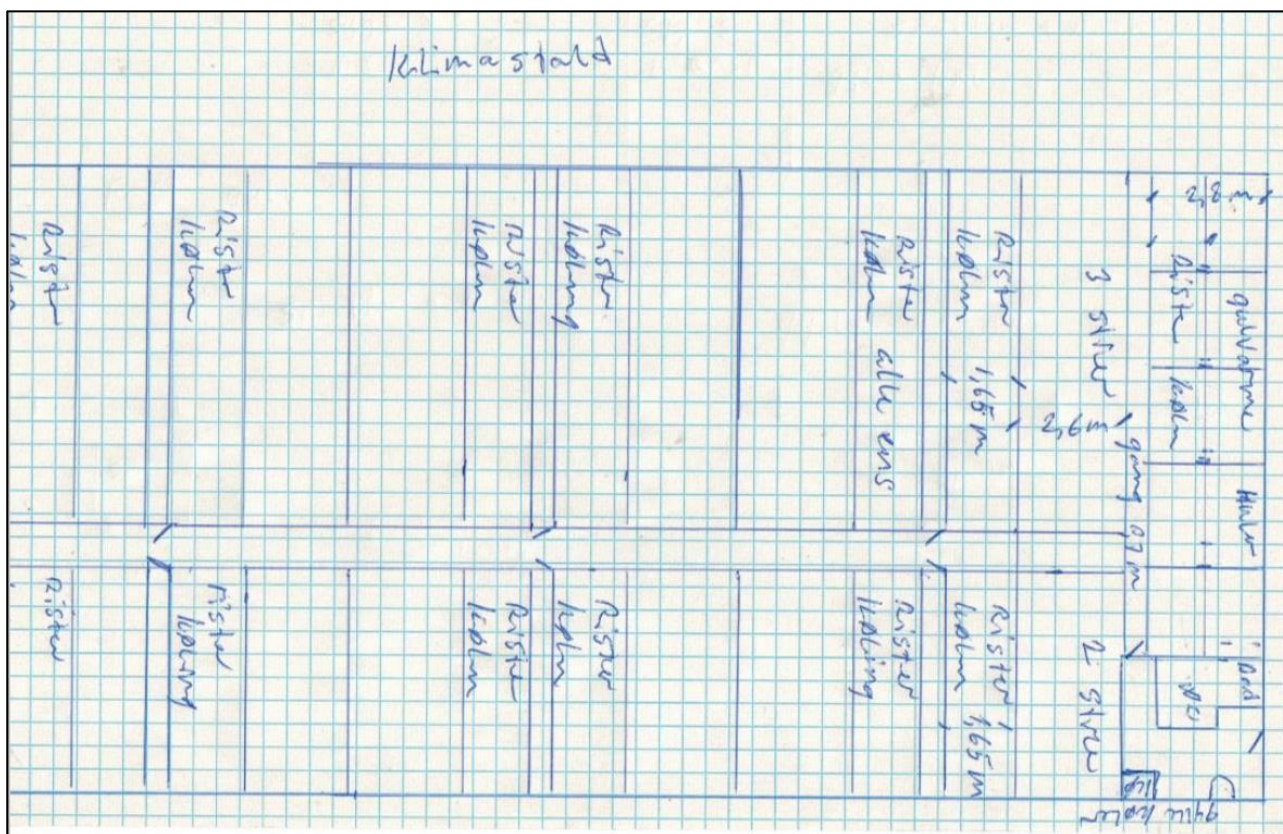 Klimastald
Rister
køling
Rister
køling
Rister
køling
Rister
køling
Rister
køling
alle ens
Rister
køling 1,65 m
3 stier
2,6 m
gang 0,7 m
2,8 m
Rister
køling
gulvvarme
Huler
Rister
Rister
køling
Rister
køling
Rister
køling
Rister
køling
Rister
køling 1,65 m
2 stier
gylle køler